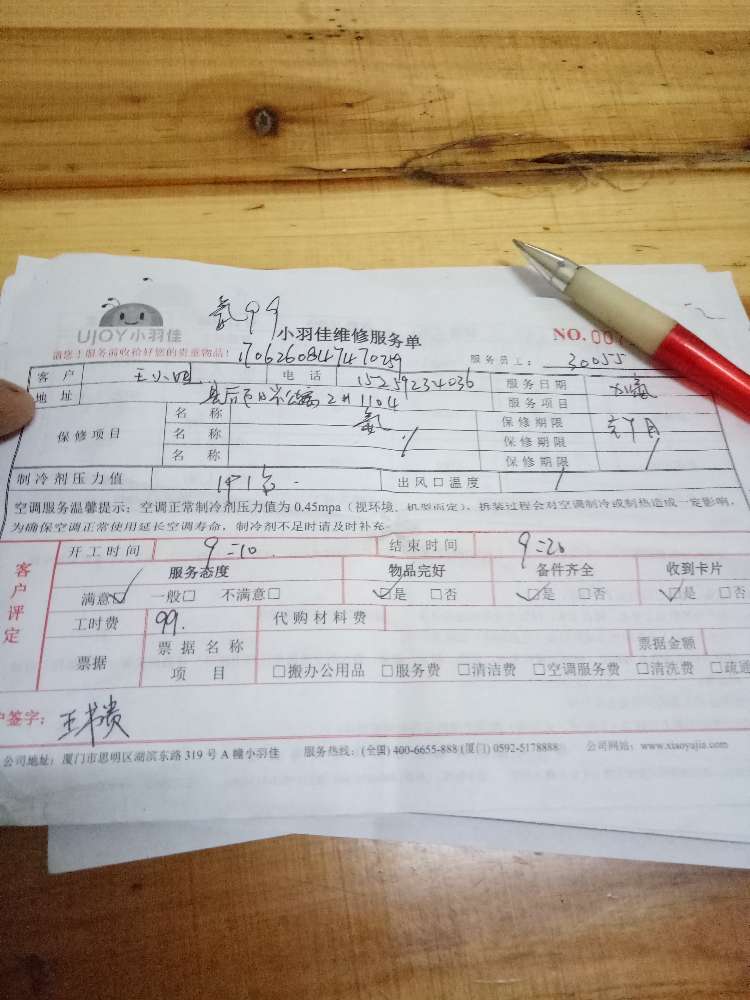 UJOY 小羽佳
小羽佳维修服务单
NO. 007
请您！服务前收拾好您的贵重物品！
1706260847470259
服务员工： 30055
客 户 王小姐 电 话 15259234036 服务日期
地 址 2# 1104 服务项目
保修项目 名 称 保修期限
名 称 保修期限
名 称 保修期限
制冷剂压力值 出风口温度 /
空调服务温馨提示：空调正常制冷剂压力值为 0.45mpa（视环境、机型而定），拆装过程会对空调制冷或制热造成一定影响，
为确保空调正常使用延长空调寿命，制冷剂不足时请及时补充。
客户评定
开工时间 9=10 结束时间 9=20
服务态度 物品完好 备件齐全 收到卡片
满意☑ 一般□ 不满意□ ☑是 □否 ☑是 □否 ☑是 □否
工时费 99. 代购材料费
票据 票据名称 票据金额
项 目 □搬办公用品 □服务费 □清洁费 □空调服务费 □清洗费 □疏通
户签字： 王书贵
公司地址：厦门市思明区湖滨东路 319 号 A 幢小羽佳 服务热线：(全国) 400-6655-888 (厦门) 0592-5178888 公司网站：www.xiaoyujia.com